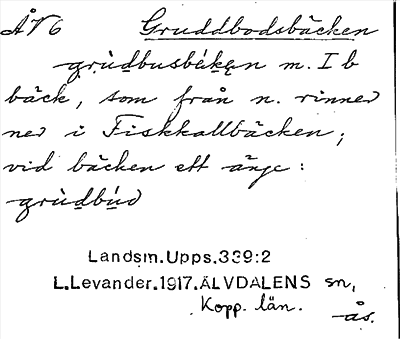 ÅV6 Gruddbodsbäcken
grùdbusbékęn m. I b
bäck, som från n. rinner
ner i Fiskkallbäcken;
vid bäcken ett änge:
grùdbúð
Landsm. Upps. 339:2
L. Levander. 1917. ÄLVDALENS sn,
Kopp. län.
ås.